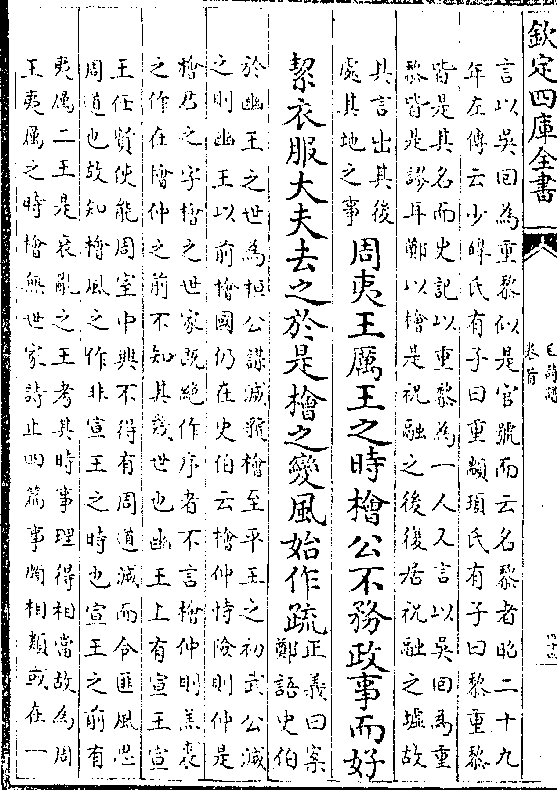 欽定四庫全書
毛詩譜
卷首
言以吳回為重黎似是官號而云名黎者昭二十九
年左傳云少皥氏有子曰重顓頊氏有子曰黎重黎
皆是其名而史記以重黎為一人又言以吳回為重
黎皆是謬耳鄭以檜是祝融之後復居祝融之墟故
具言出其後
處其地之事
周夷王厲王之時檜公不務政事而好
絜衣服大夫去之於是檜之變風始作疏
正義曰案
鄭語史伯
於幽王之世為桓公謀滅虢檜至平王之初武公滅
之則幽王以前檜國仍在史伯云檜仲恃險則仲是
檜君之字檜之世家既絶作序者不言檜仲則羔裘
之作在檜仲之前不知其幾世也幽王上有宣王宣
王任賢使能周室中興不得有周道滅而令匪風思
周道也故知檜風之作非宣王之時也宣王之前有
夷厲二王是衰亂之王考其時事理得相當故為周
王夷厲之時檜無世家詩止四篇事頗相類或在一